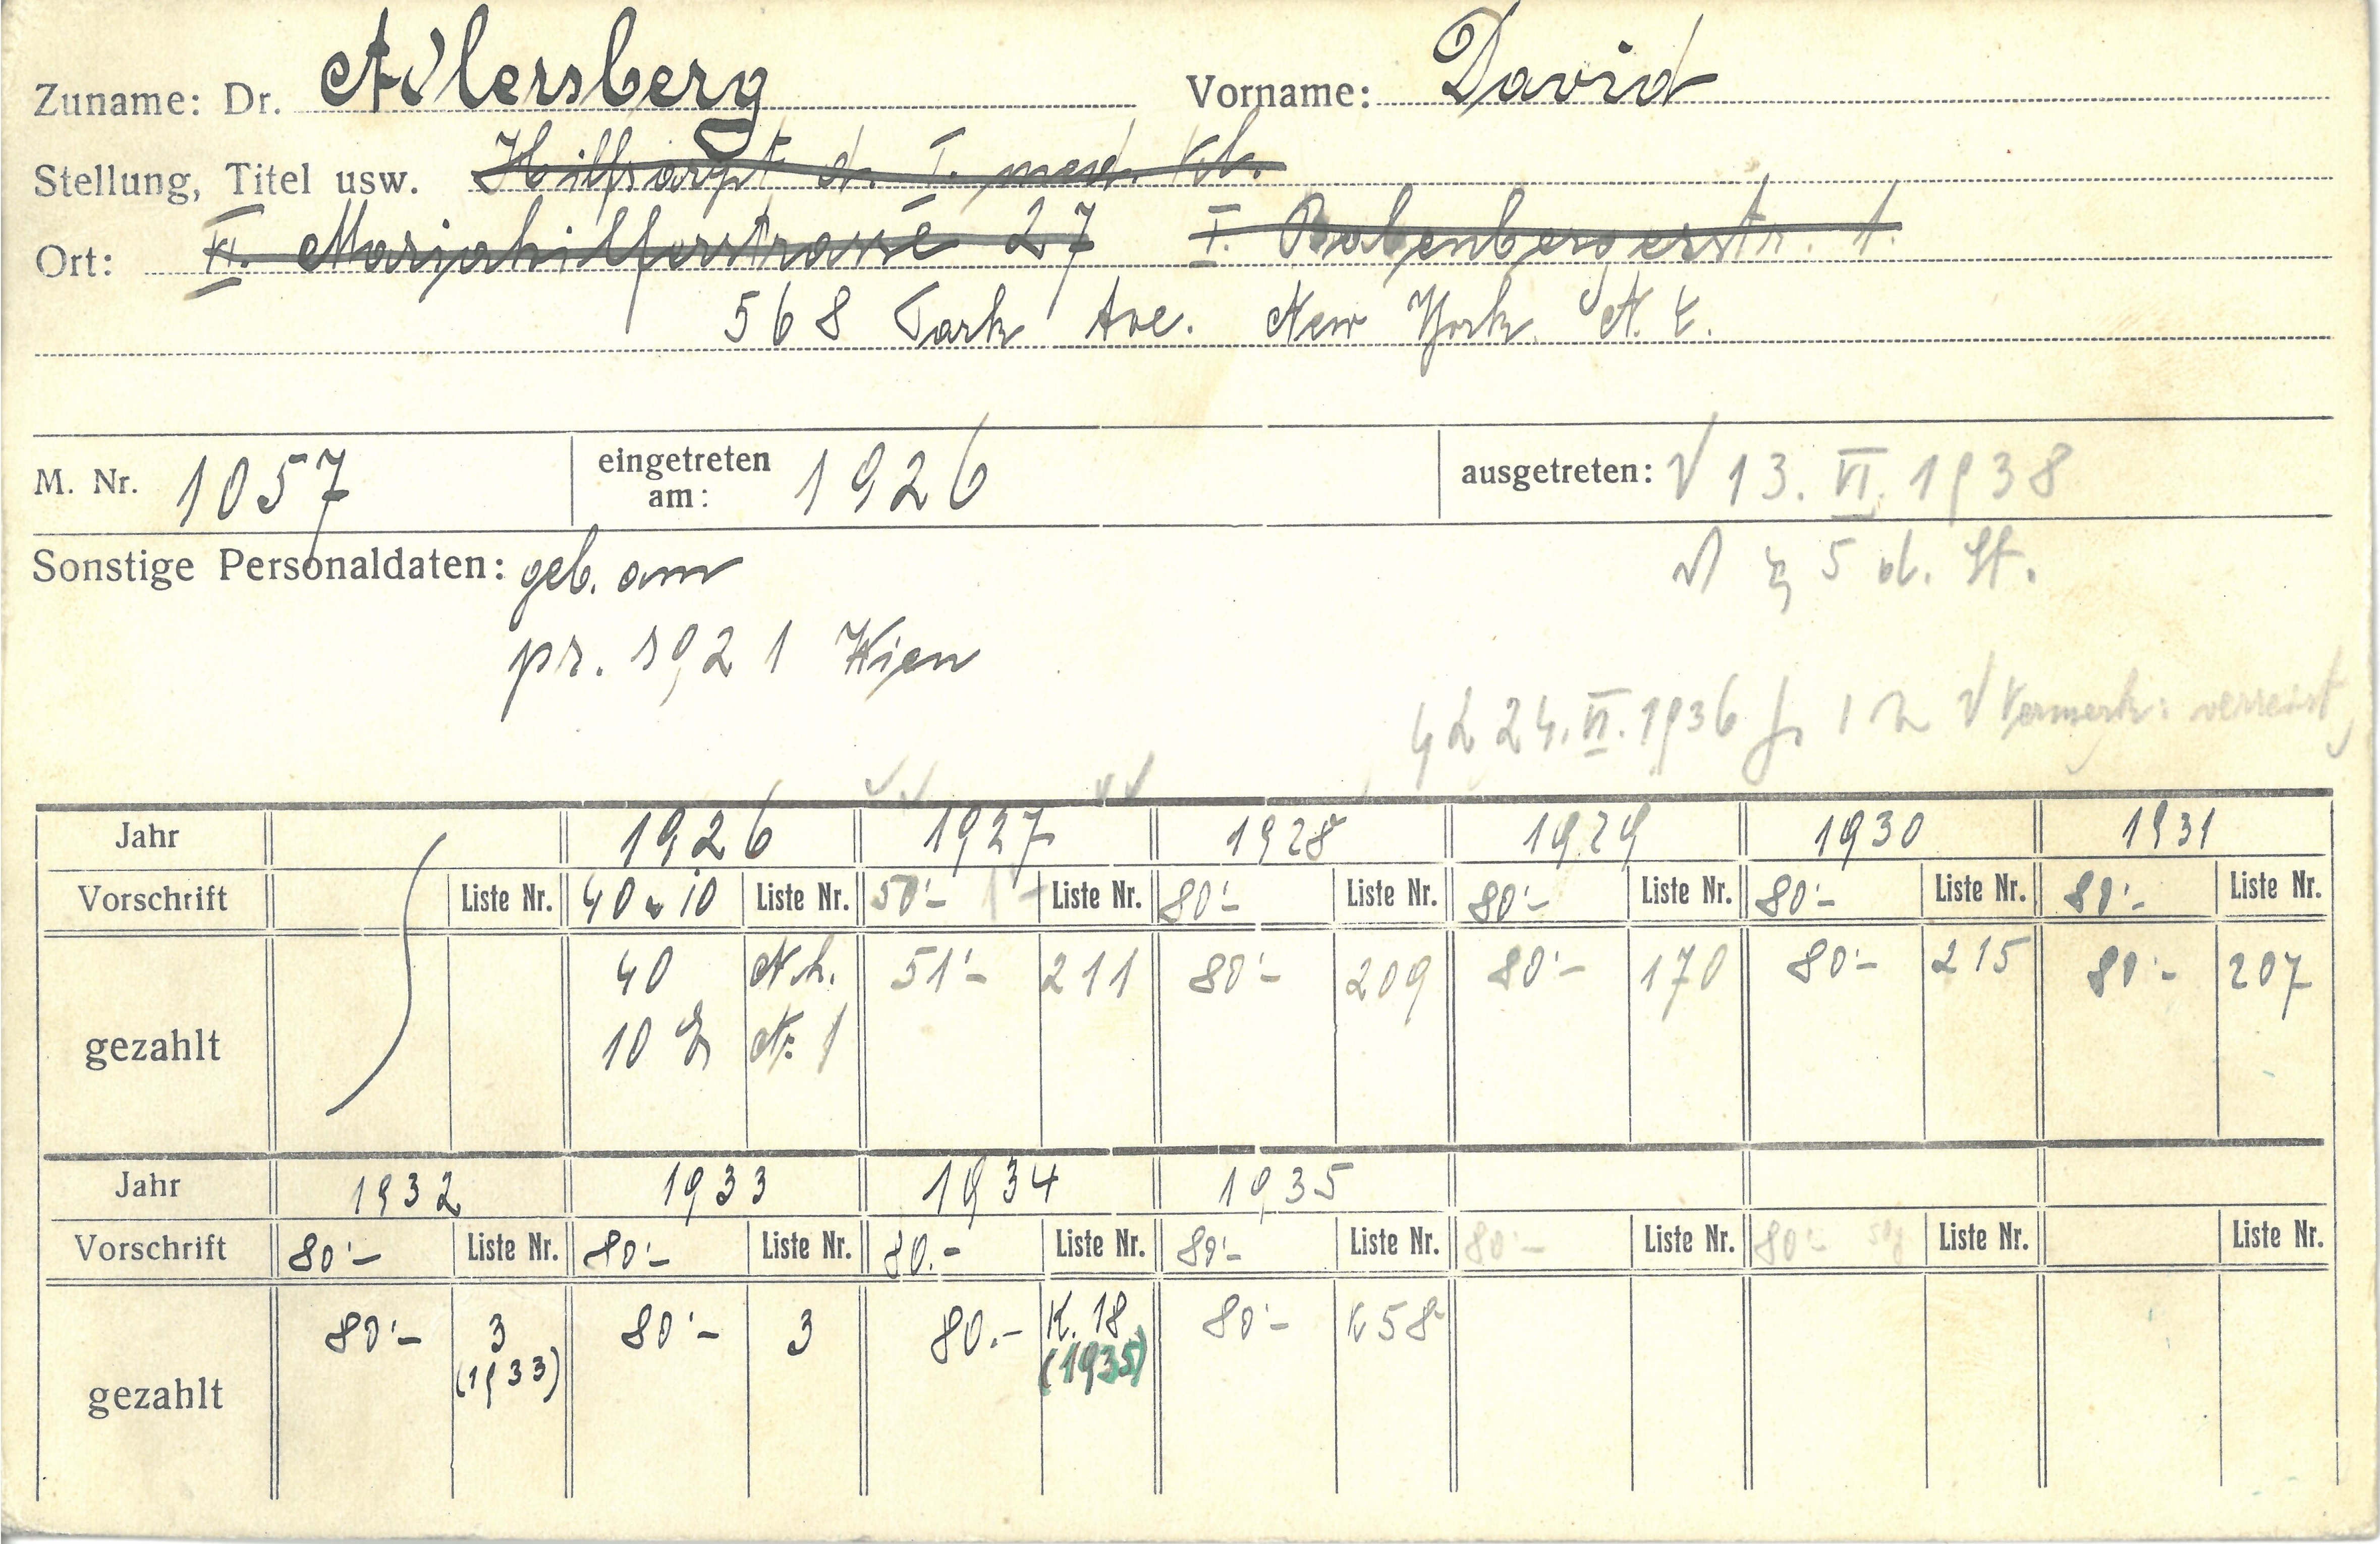 Zuname: Dr. Adlersberg Vorname: David
Stellung, Titel usw. Hilfsarzt d. I. med. Kl.
Ort: VI. Mariahilferstrasse 27 I. Babenbergerstr. 1.
568 Park Ave. New York N. Y.
M. Nr. 1057 eingetreten am: 1926 ausgetreten: 13. VI. 1938
Sonstige Personaldaten: geb. am
§ 5 d. St.
pr. 1921 Wien
24. VI. 1936 Vermerk: verreist,
Jahr 1926 1927 1928 1929 1930 1931
Vorschrift Liste Nr. 40 + 10 Liste Nr. 50'- 1- Liste Nr. 80'- Liste Nr. 80'- Liste Nr. 80'- Liste Nr. 80'- Liste Nr.
gezahlt 40 51'- 211 80'- 209 80'- 170 80'- 215 80'- 207
10 N. 1
Jahr 1932 1933 1934 1935
Vorschrift 80'- Liste Nr. 80'- Liste Nr. 80.- Liste Nr. 80'- Liste Nr. 80'- Liste Nr. 80'- Liste Nr. Liste Nr.
gezahlt 80'- 3 80'- 3 80.- K. 18 80'- K 58
(1933) (1935)